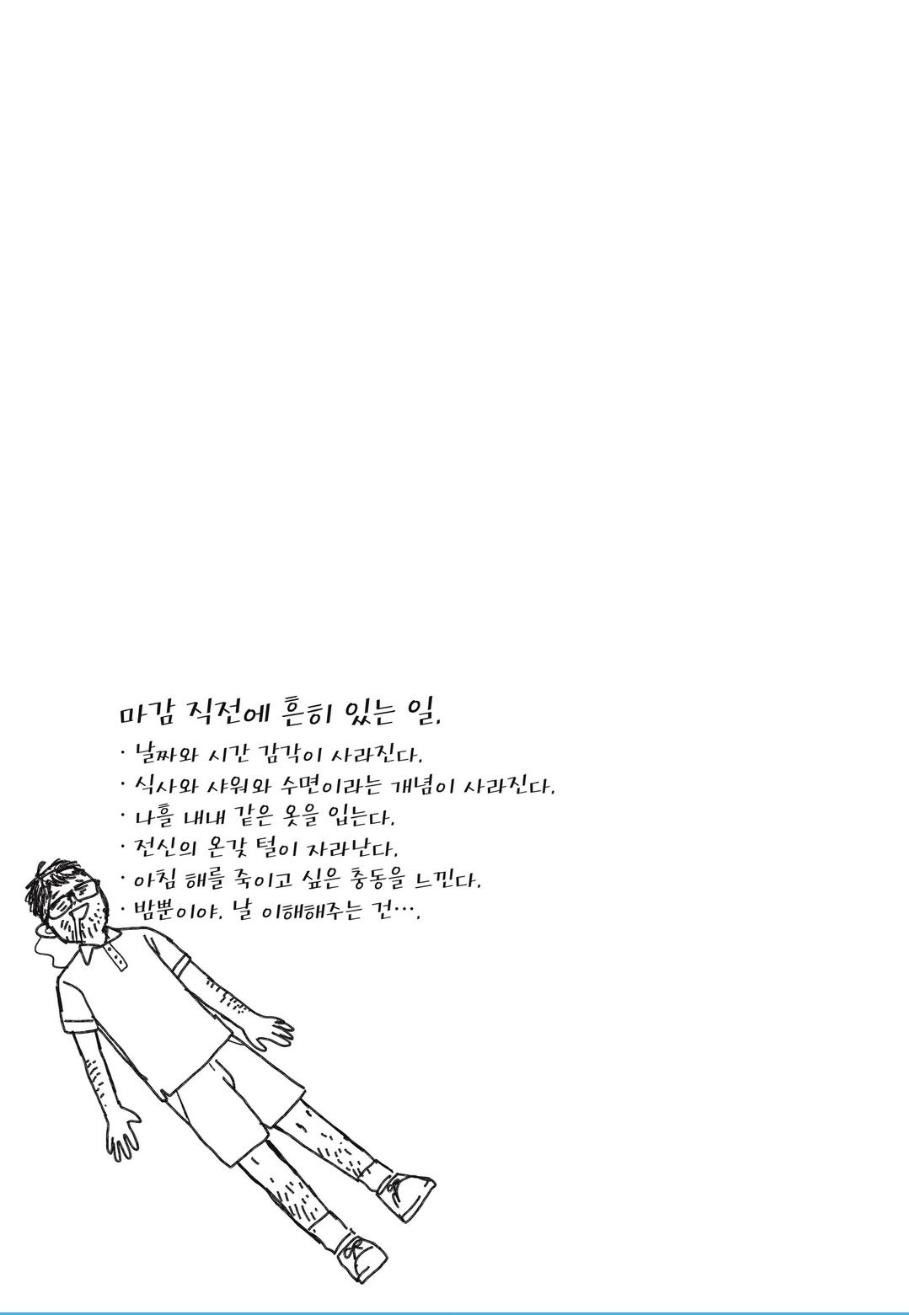 마감 직전에 흔히 있는 일.
· 날짜와 시간 감각이 사라진다.
· 식사와 샤워와 수면이라는 개념이 사라진다.
· 나흘 내내 같은 옷을 입는다.
· 전신의 온갖 털이 자라난다.
· 아침 해를 죽이고 싶은 충동을 느낀다.
· 밤뿐이야. 날 이해해주는 건….